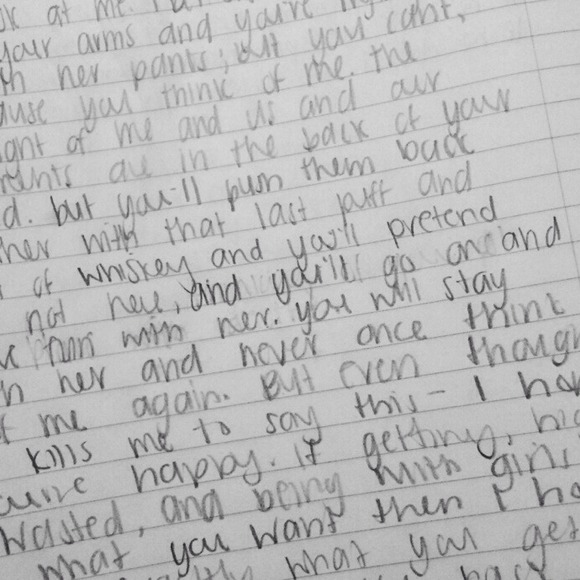 at me.
your arms and you're
her pants; but you can't,
you think of me. the
of me and us and our
are in the back of your
d. but you'll push them back
her with that last puff and
of whiskey and you'll pretend
not her, and you'll go on and
fun with her. you will stay
her and never once think
me again. But even though
kills me to say this - I ho
happy. If getting, hi
wasted, and being with girls
what you want then I ho
what you get